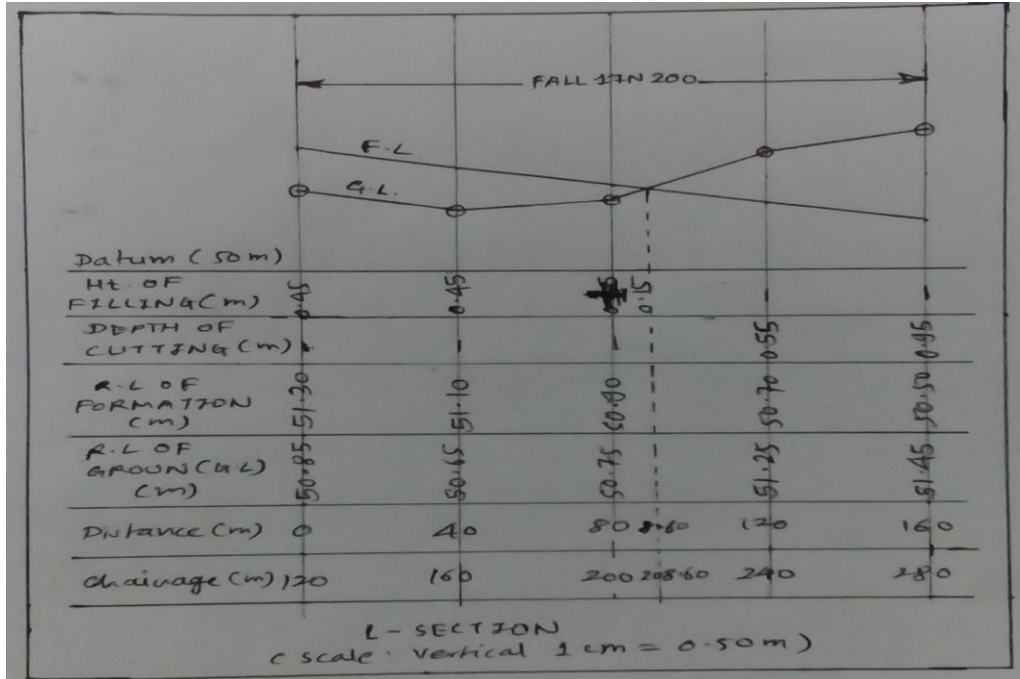 FALL 1 IN 200
F.L
G.L.
Datum (50m)
Ht. OF
FILLING(m) 0.45 0.45 0.15 - -
DEPTH OF
CUTTING(m) - - - 0.55 0.95
R.L OF
FORMATION
(m) 51.30 51.10 50.90 50.70 50.50
R.L OF
GROUN(G.L)
(m) 50.85 50.65 50.75 51.25 51.45
Distance (m) 0 40 80 8.60 120 160
chainage (m) 120 160 200 208.60 240 280
L - SECTION
(scale. vertical 1 cm = 0.50m)